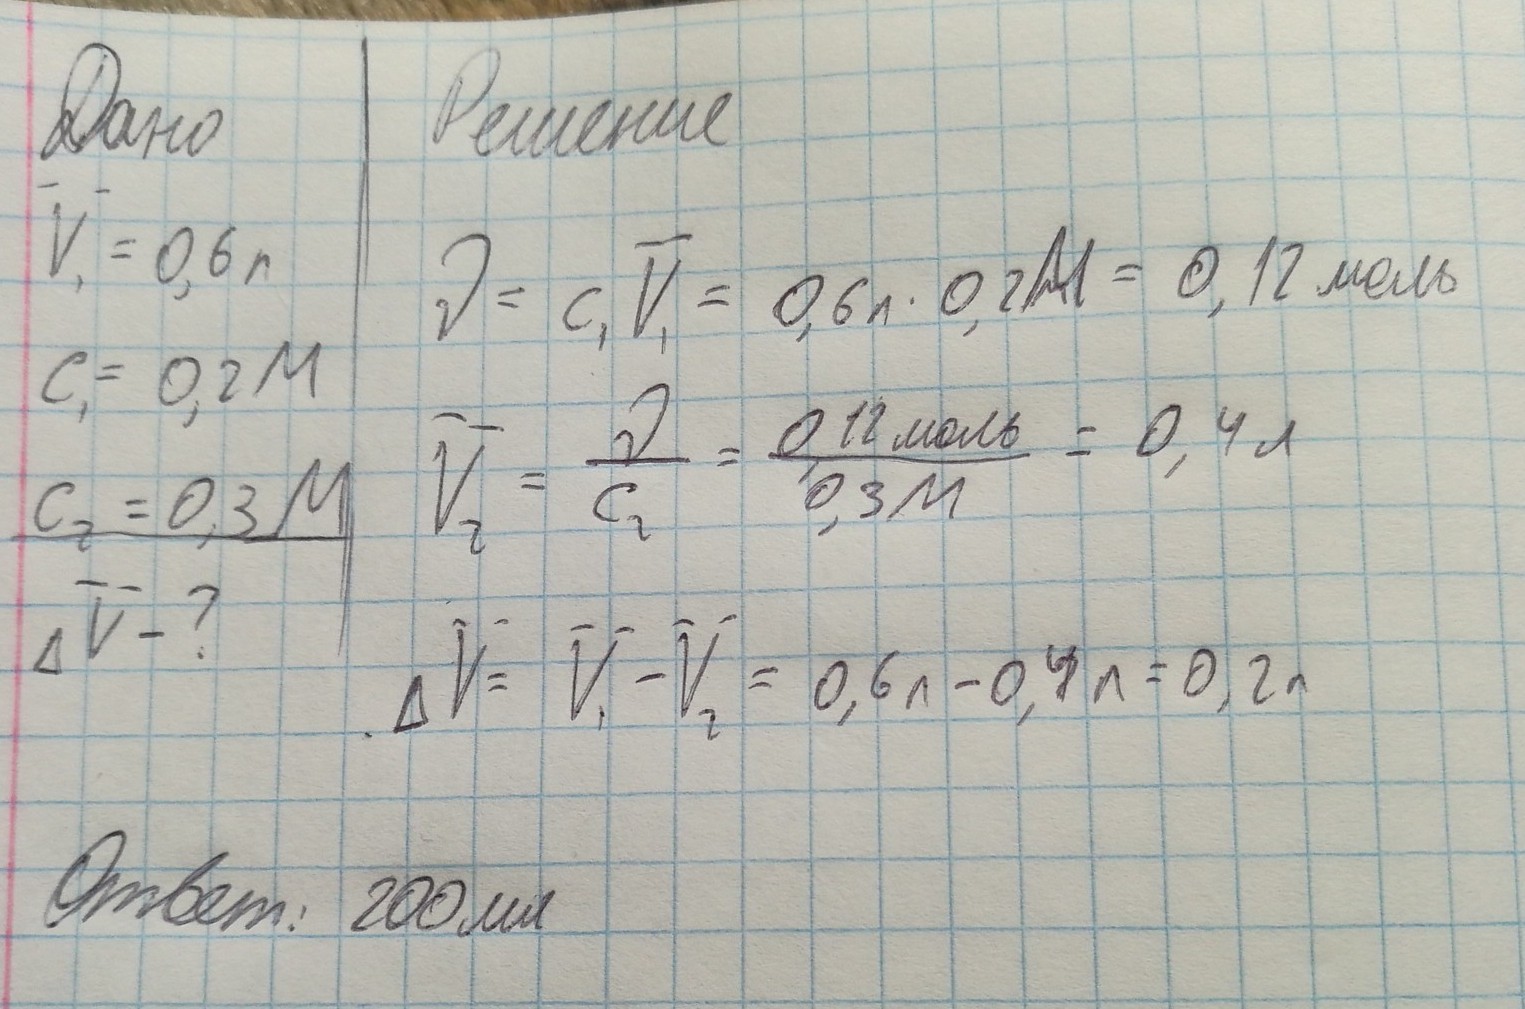 Дано
V₁ = 0,6 л
C₁ = 0,2 М
C₂ = 0,3 М
ΔV - ?
Решение
ν = C₁V₁ = 0,6 л · 0,2 М = 0,12 моль
V₂ = ν/C₂ = 0,12 моль/0,3 М = 0,4 л
ΔV = V₁ - V₂ = 0,6 л - 0,4 л = 0,2 л
Ответ: 200 мл